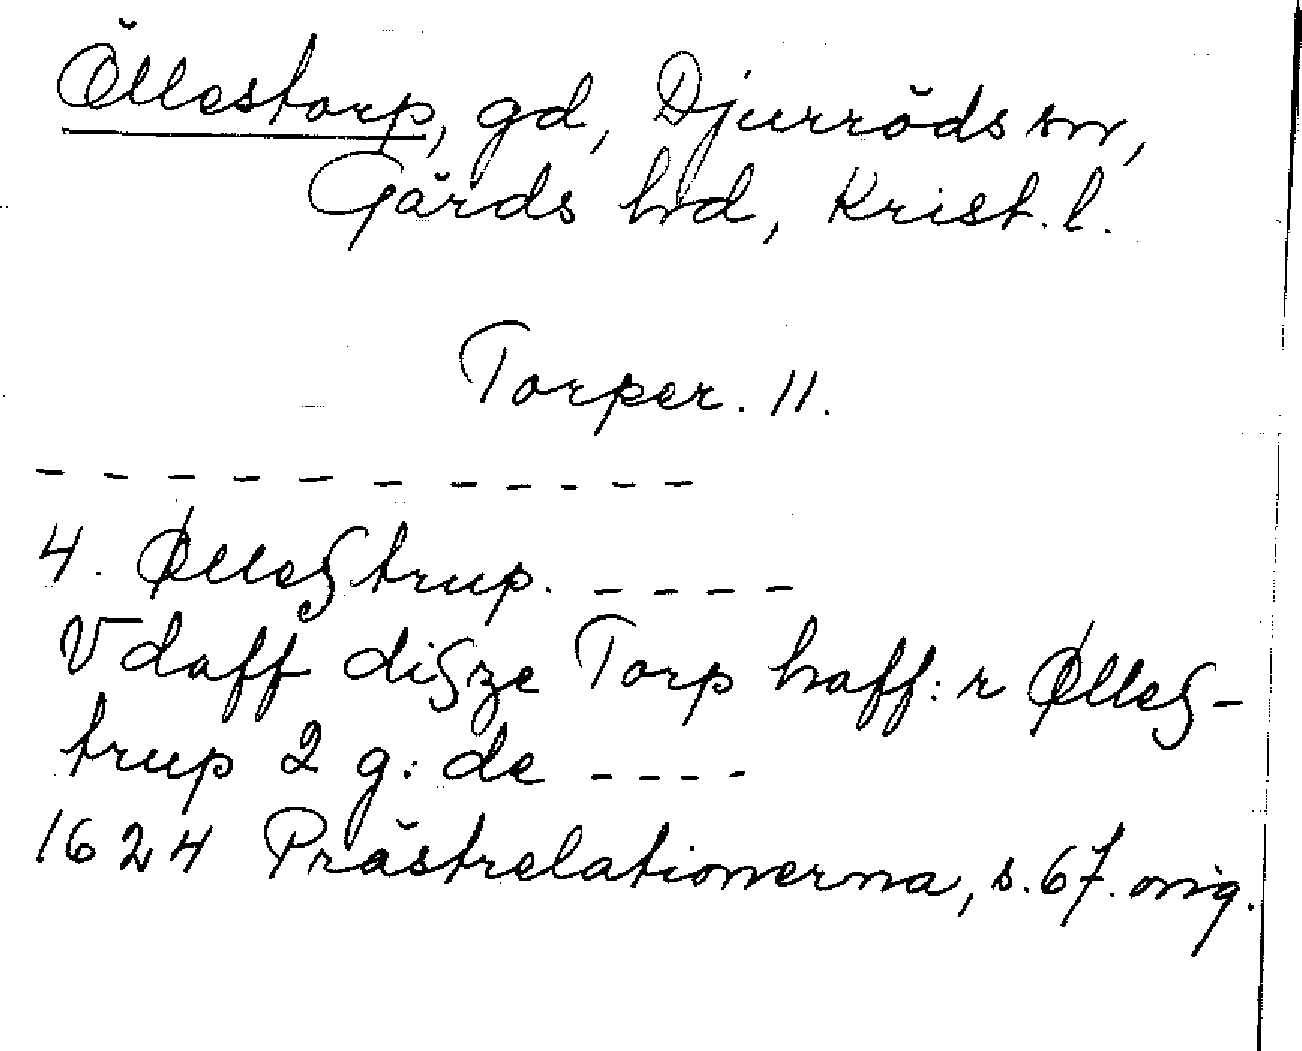 Öllestorp, gd, Djurröds sn,
Gärds hd, Krist. l.
Torper. 11.
- - - - - - - - - - -
4. Ølleßtrup. - - - -
Vdaff dißze Torp haff: rØlleß-
trup 2 g: de - - - -
1624 Prästrelationerna, s. 67. orig.